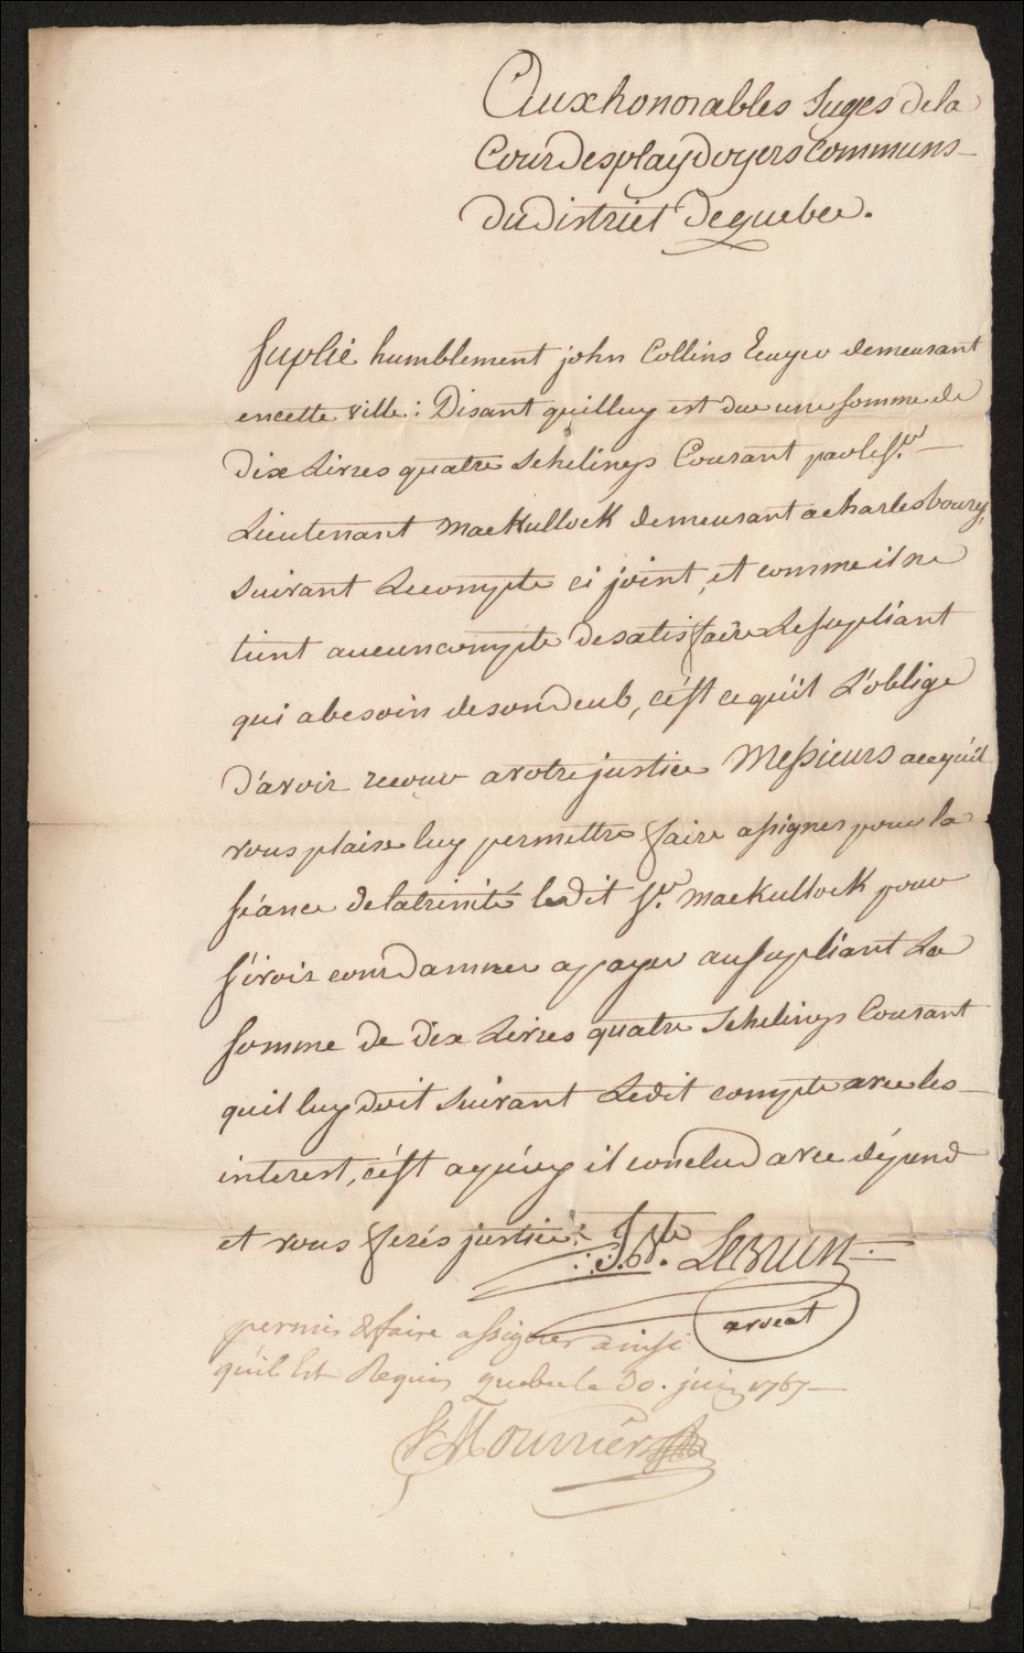 Aux honorables Juges de la
Cour des playdoyers communs
du district de quebec.
suplie humblement john Collins Ecuyer demeurant
en cette ville : Disant quil luy est due une somme de
dix Livres quatre schelings Courant par le Sr.
Lieutenant MacKullock demeurant a charlesbourg,
suivant Le compte ci joint, et comme il ne
tient aucun compte de satisfaire Le supliant
qui a besoin de son deub, c'est ce qu'il L'oblige
d'avoir recour a votre justice Messieurs a ce qu'il
vous plaise luy permettre faire assigner pour la
séance de la trinité ledit Sr. MacKullock pour
s'i voir condamner a payer au supliant La
somme de dix Livres quatre schelings Courant
quil luy doit suivant Ledit compte avec les
interest, c'est a quoy il conclud avec dépend
et vous ferés justice :
J. Bte. LeBrun
avocat
permis de faire assigner ainsi
qu'il Est Requis quebec le 30. juin 1767
F Mounier